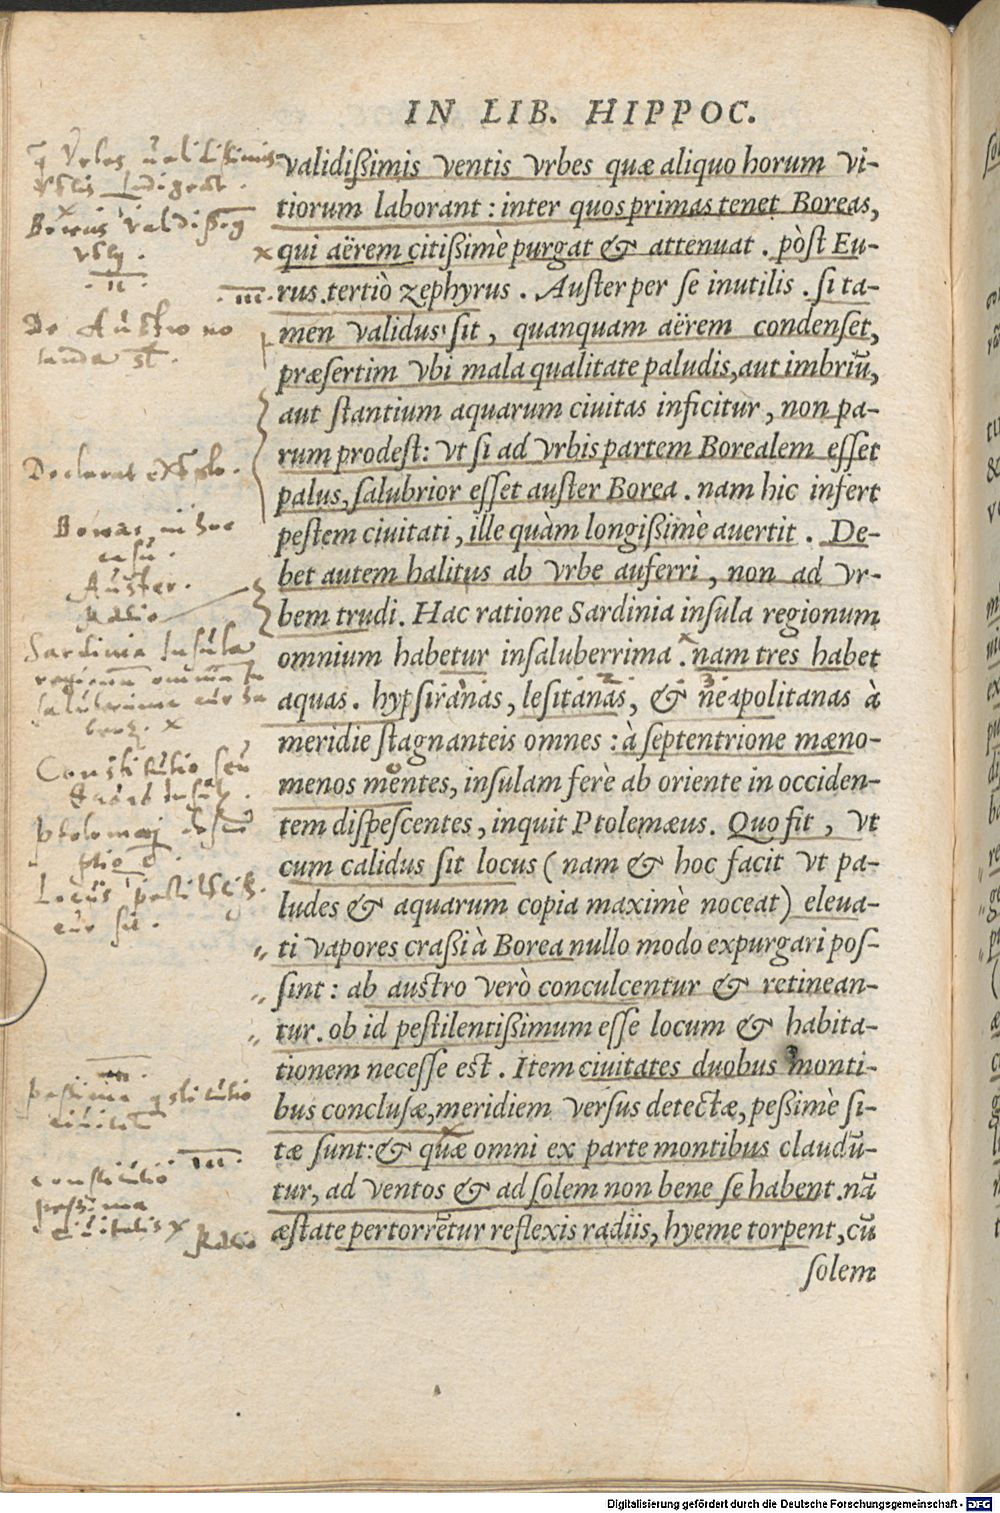 IN LIB. HIPPOC.
validißimis ventis vrbes quæ aliquo horum vi-
tiorum laborant: inter quos primas tenet Boreas,
qui aërem citißimè purgat & attenuat. pòst Eu-
rus. tertiò zephyrus. Auster per se inutilis. si ta-
men validus sit, quanquam aërem condenset,
præsertim vbi mala qualitate paludis, aut imbriū,
aut stantium aquarum ciuitas inficitur, non pa-
rum prodest: vt si ad vrbis partem Borealem esset
palus, salubrior esset auster Borea. nam hic infert
pestem ciuitati, ille quàm longißimè auertit. De-
bet autem halitus ab vrbe auferri, non ad vr-
bem trudi. Hac ratione Sardinia insula regionum
omnium habetur insaluberrima. nam tres habet
aquas. hypsiranas, lesitanas, & neapolitanas à
meridie stagnanteis omnes: à septentrione mæno-
menos montes, insulam ferè ab oriente in occiden-
tem dispescentes, inquit Ptolemæus. Quo fit, vt
cum calidus sit locus (nam & hoc facit vt pa-
ludes & aquarum copia maximè noceat) eleua-
ti vapores craßi à Borea nullo modo expurgari pos-
sint: ab austro verò conculcentur & retinean-
tur. ob id pestilentißimum esse locum & habita-
tionem necesse est. Item ciuitates duobus monti-
bus conclusæ, meridiem versus detectæ, peßimè si-
tæ sunt: & quæ omni ex parte montibus claudū-
tur, ad ventos & ad solem non bene se habent. nā
æstate pertorrētur reflexis radiis, hyeme torpent, cū
solem
.II.
.III.
De Austro no
Declarat
Boreas in hoc
casu.
Auster.
Ratio
Sardinia Insula
Constitutio seu
Locus
sit.
pessima
ciuitat
.III.
constitutio
pessima
ciuitatis x
Ratio
Digitalisierung gefördert durch die Deutsche Forschungsgemeinschaft - DFG